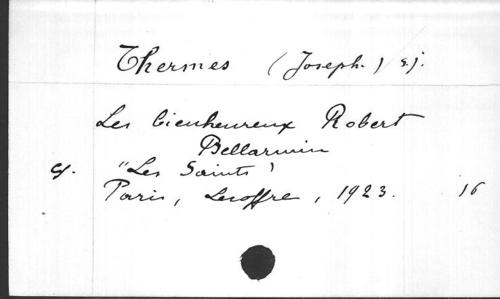 Thermes (Joseph.) s.j.
Les bienheureux Robert
Bellarmin
cf. "Les Saints"
Paris, Lecoffre, 1923. 16